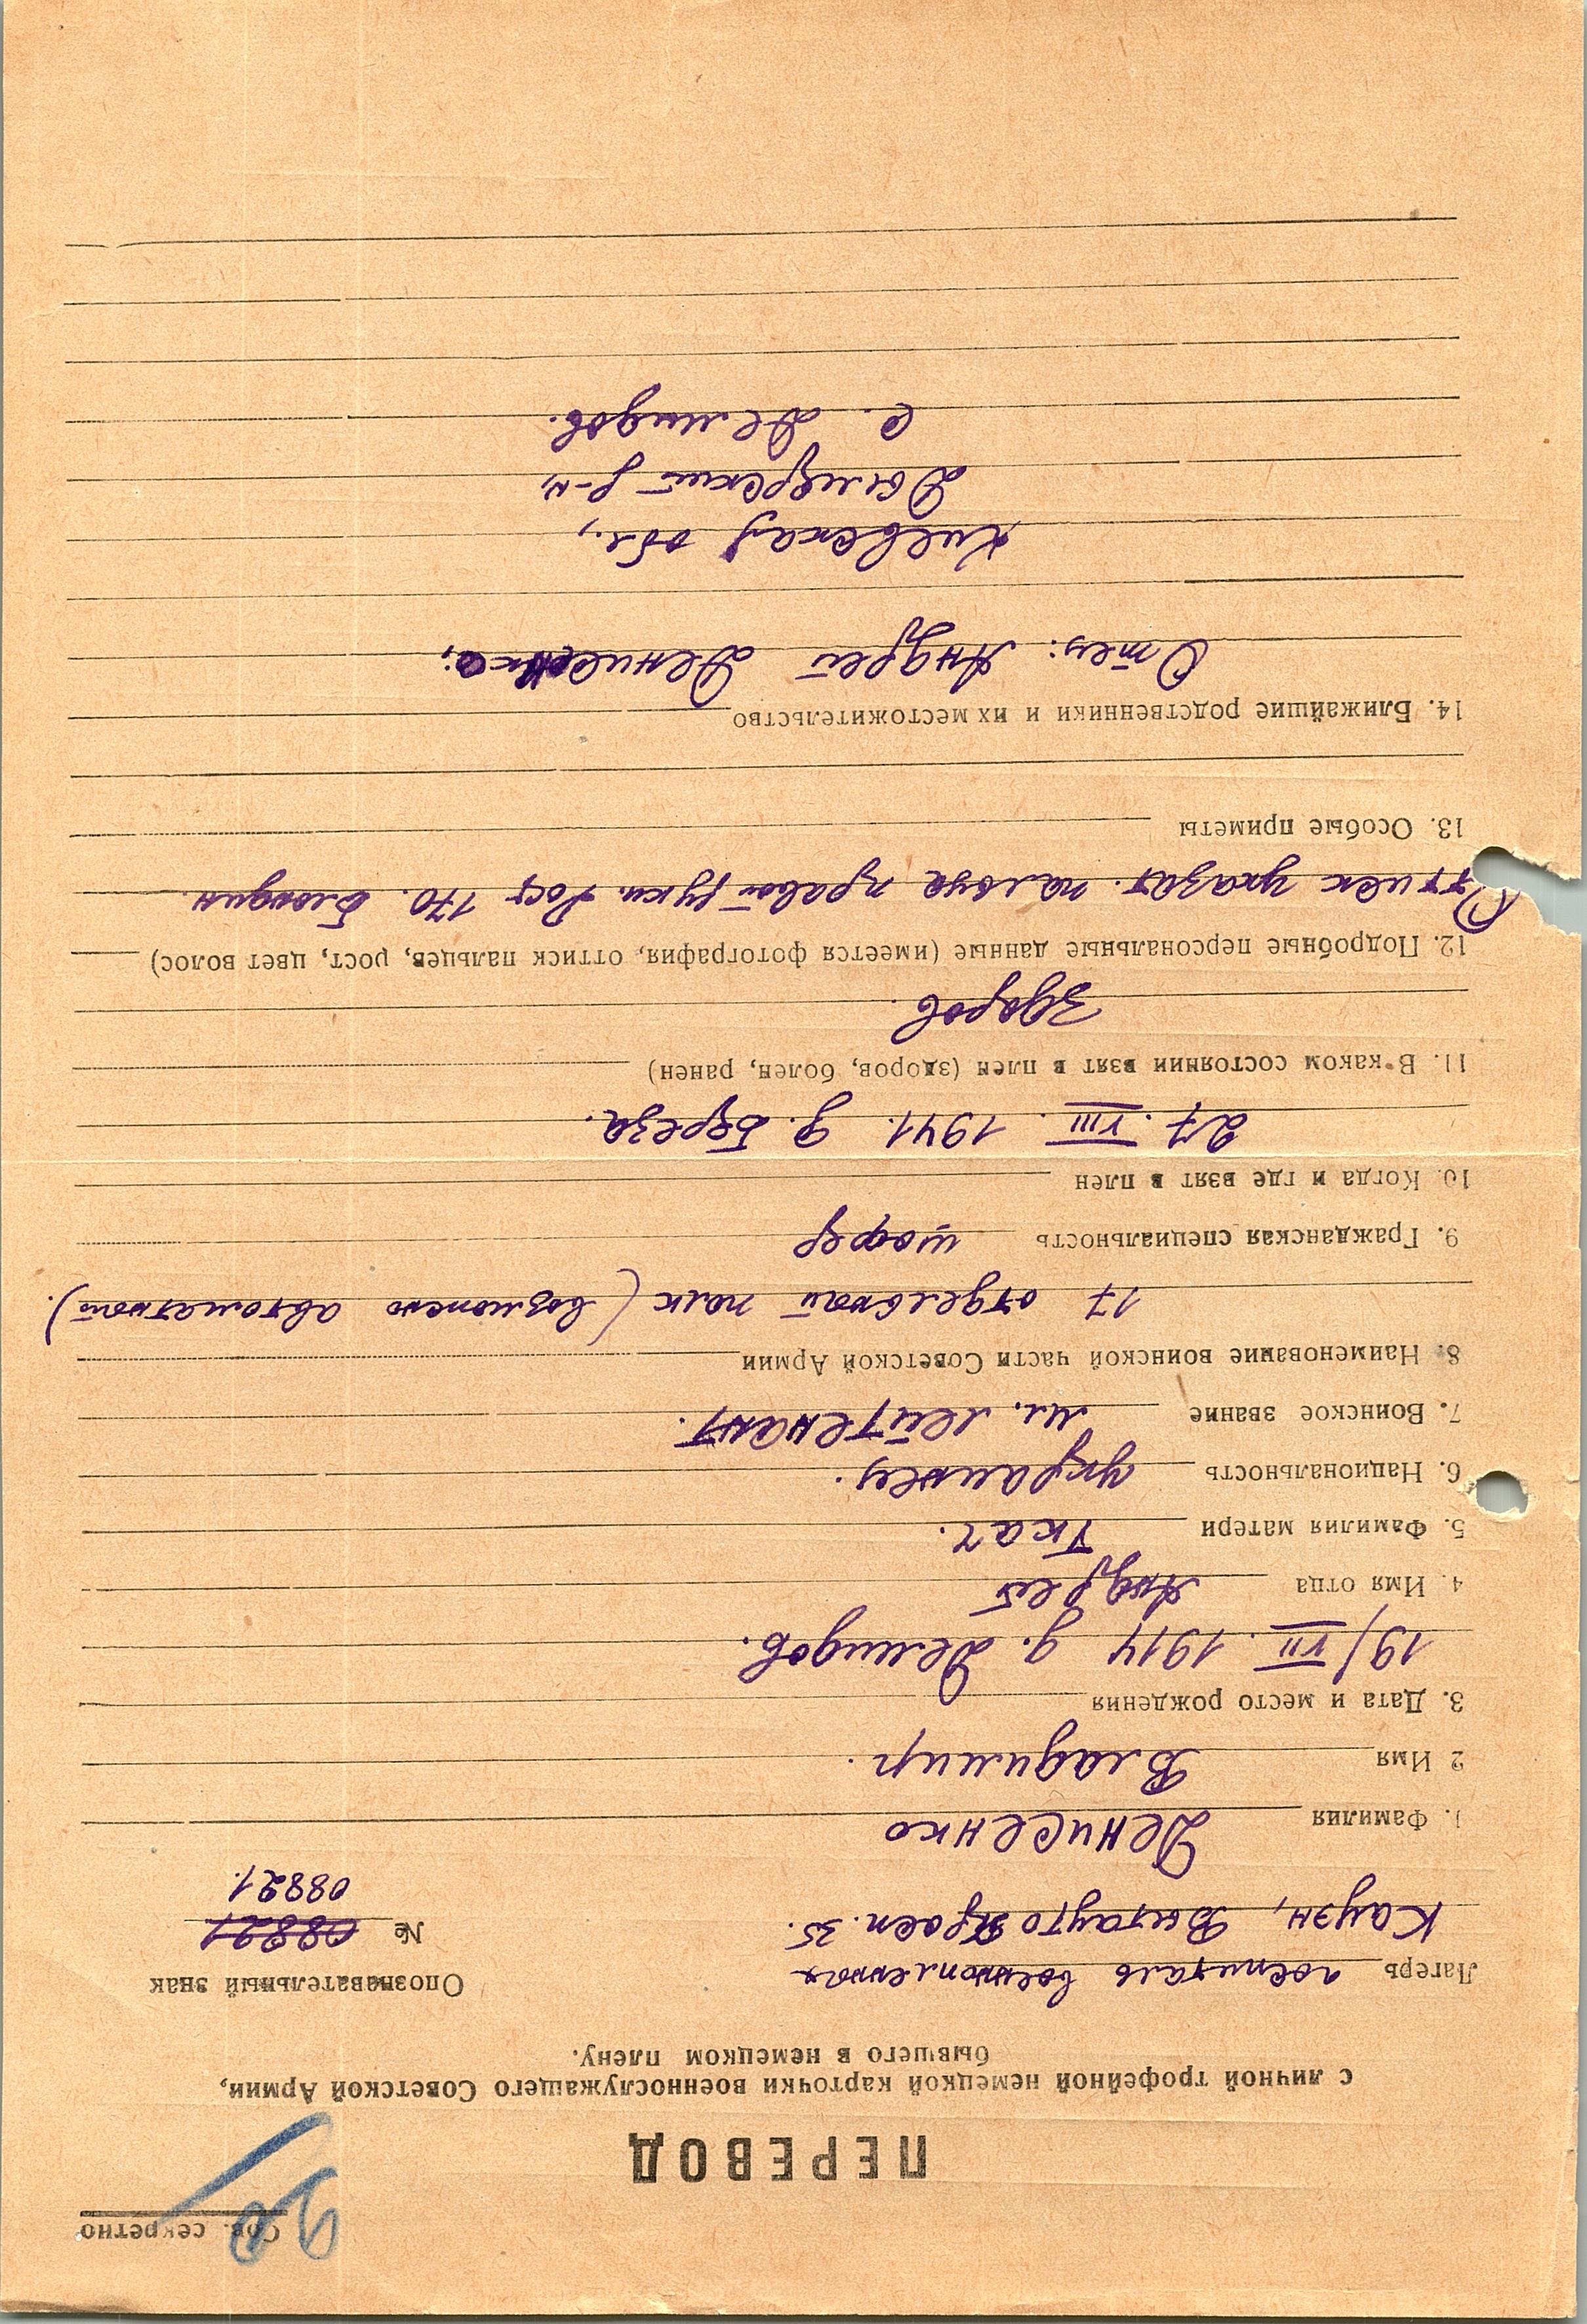 Сов. секретно
ПЕРЕВОД
с личной трофейной немецкой карточки военнослужащего Советской Армии,
бывшего в немецком плену.
Лагерь госпиталь военнопленных Опознавательный знак
Каузн, Витауто Просп. 35. № 08821
08821.
1. Фамилия Денисенко
2 Имя Владимир.
3. Дата и место рождения
19/VII. 1914 д. Демидов.
4. Имя отца Андрей
5. Фамилия матери Ткач.
6. Национальность украинец.
7. Воинское звание мл. лейтенант.
8. Наименование воинской части Советской Армии
17 отдельный полк (возможно автоматный).
9. Гражданская специальность шофер
10. Когда и где взят в плен
27. VIII. 1941. д. Береза.
11. В каком состоянии взят в плен (здоров, болен, ранен)
Здоров.
12. Подробные персональные данные (имеется фотография, оттиск пальцев, рост, цвет волос)
Оттиск указат. пальца правой руки. Рост 170. Блондин.
13. Особые приметы
14. Ближайшие родственники и их местожительство
Отец: Андрей Денисенко;
Киевская обл.,
Дымерский р-н,
с. Демидов.